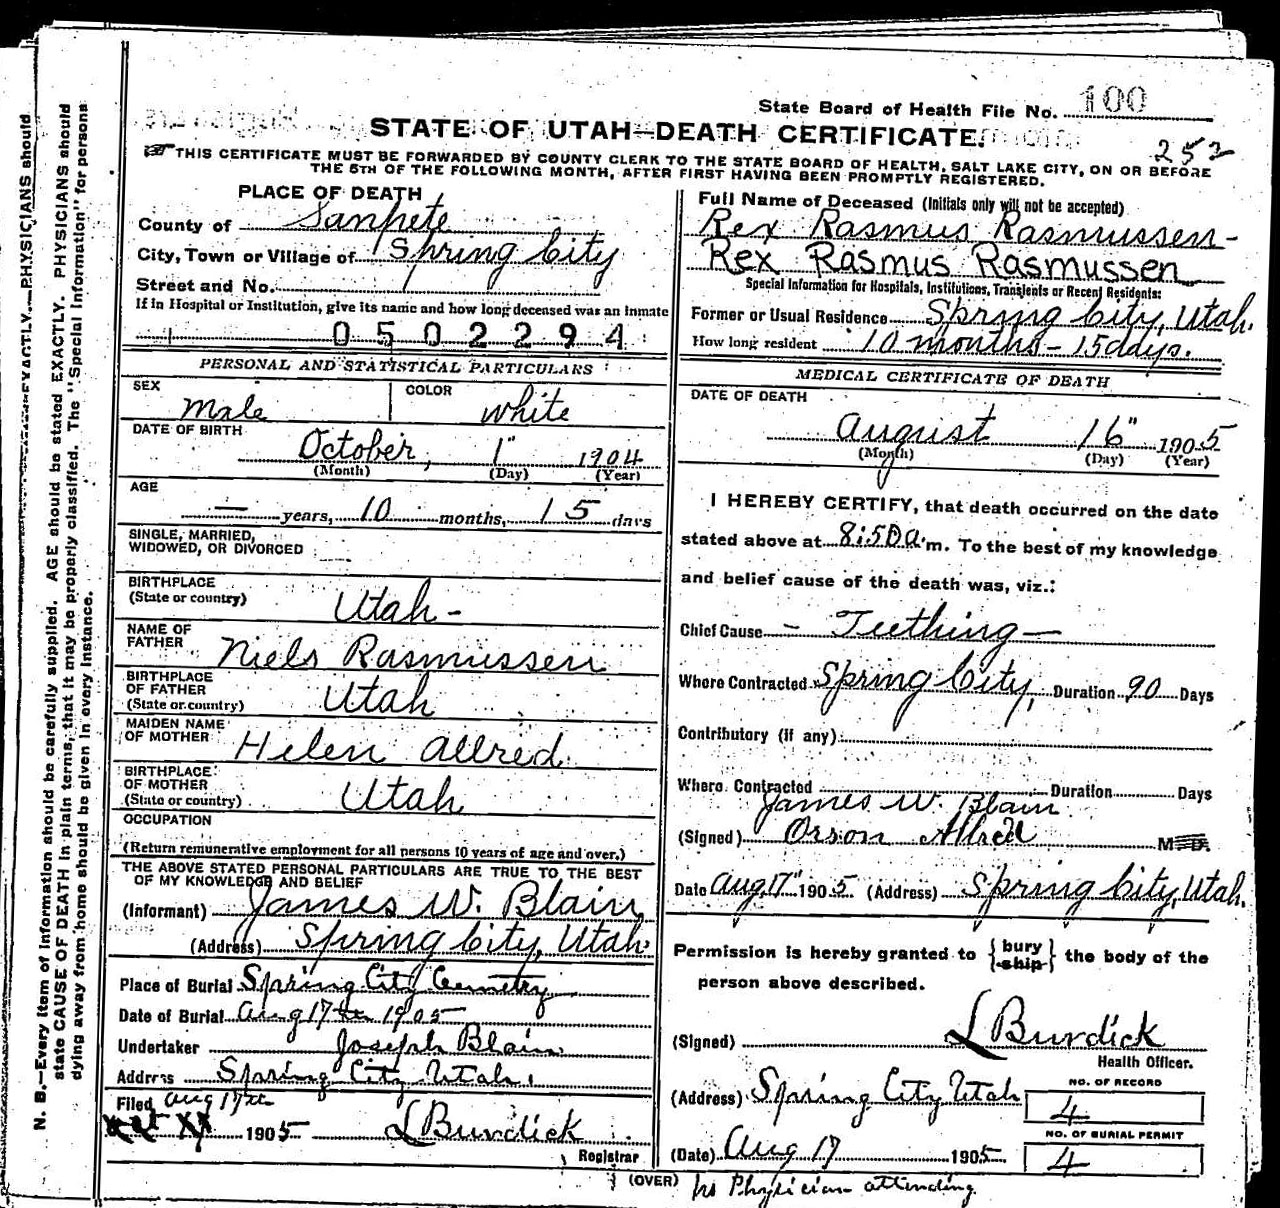 State Board of Health File No. 100
STATE OF UTAH—DEATH CERTIFICATE.
252
THIS CERTIFICATE MUST BE FORWARDED BY COUNTY CLERK TO THE STATE BOARD OF HEALTH, SALT LAKE CITY, ON OR BEFORE
THE 5TH OF THE FOLLOWING MONTH, AFTER FIRST HAVING BEEN PROMPTLY REGISTERED.
PLACE OF DEATH
County of Sanpete
City, Town or Village of Spring City
Street and No.
If in Hospital or Institution, give its name and how long deceased was an inmate
0502294
PERSONAL AND STATISTICAL PARTICULARS
SEX Male
COLOR white
DATE OF BIRTH
October, 1" 1904
(Month) (Day) (Year)
AGE
— years, 10 months, 15 days
SINGLE, MARRIED,
WIDOWED, OR DIVORCED
BIRTHPLACE
(State or country) Utah -
NAME OF
FATHER Niels Rasmussen
BIRTHPLACE
OF FATHER
(State or country) Utah
MAIDEN NAME
OF MOTHER Helen Allred
BIRTHPLACE
OF MOTHER
(State or country) Utah
OCCUPATION
(Return remunerative employment for all persons 10 years of age and over.)
THE ABOVE STATED PERSONAL PARTICULARS ARE TRUE TO THE BEST
OF MY KNOWLEDGE AND BELIEF
(Informant) James W. Blain
(Address) Spring City, Utah.
Place of Burial Spring City Cemetry
Date of Burial Aug 17th 1905
Undertaker Joseph Blain
Address Spring City Utah.
Filed Aug 17th
1905 L Burdick
Registrar
Full Name of Deceased (Initials only will not be accepted)
Rex Rasmus Rasmussen -
Rex Rasmus Rasmussen
Special Information for Hospitals, Institutions, Transients or Recent Residents:
Former or Usual Residence Spring City, Utah.
How long resident 10 months - 15 days.
MEDICAL CERTIFICATE OF DEATH
DATE OF DEATH
August 16" 1905
(Month) (Day) (Year)
I HEREBY CERTIFY, that death occurred on the date
stated above at 8:50 a.m. To the best of my knowledge
and belief cause of the death was, viz.:
Chief Cause - Teething —
Where Contracted Spring City, Duration 90 Days
Contributory (if any)
Where Contracted Duration Days
James W. Blain
(Signed) Orson Allred M.D.
Date Aug 17" 1905 (Address) Spring City, Utah.
Permission is hereby granted to {bury ship} the body of the
person above described.
(Signed) L Burdick
Health Officer.
(Address) Spring City Utah
NO. OF RECORD
4
NO. OF BURIAL PERMIT
4
(Date) Aug 17 1905
(OVER) No Physician attending
N. B.—Every item of information should be carefully supplied. AGE should be stated EXACTLY. PHYSICIANS should
state CAUSE OF DEATH in plain terms, that it may be properly classified. The "Special Information" for persons
dying away from home should be given in every instance.
EXACTLY.—PHYSICIANS should